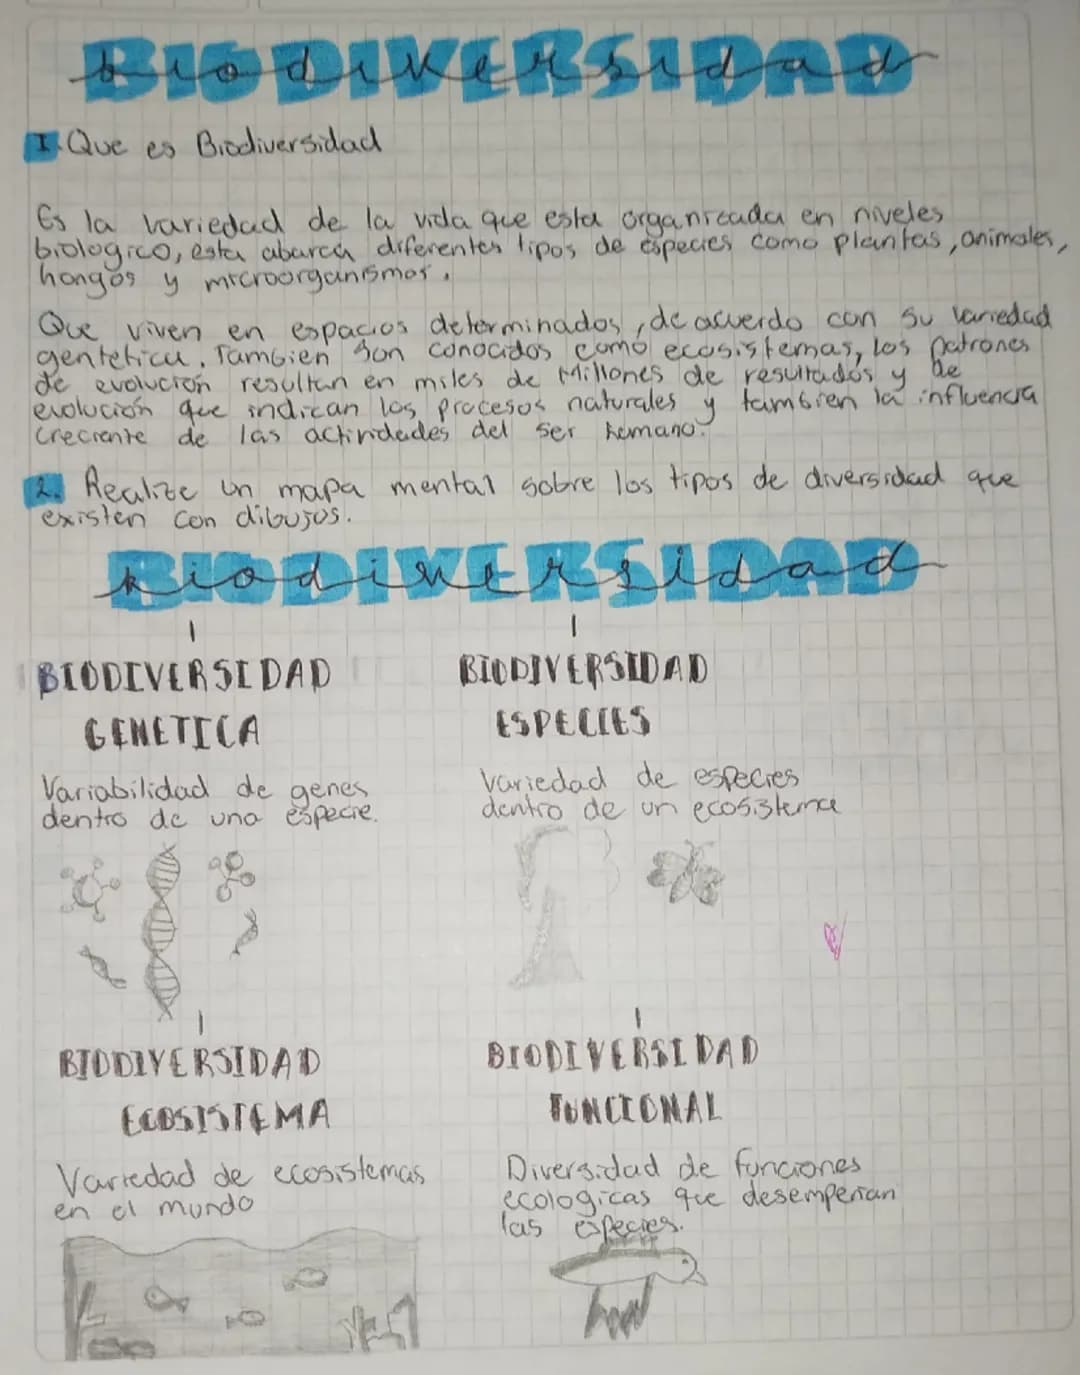 BIODIVERSIDAD
biodiversidad
1. Que es Biodiversidad
Es la variedad de la vida que esta organizada en niveles
biologico, esta abarca diferentes tipos de especies como plantas, animales,
hongos y microorganismos.
Que viven en espacios determinados, de acuerdo con su variedad
gentetica. Tambien son conocidos como ecosistemas, los patrones
de evolución resultan en miles de Millones de resultados y de
evolución que indican los procesos naturales y tambien la influencia
creciente de las actividades del ser humano.
2. Realize un mapa mental sobre los tipos de diversidad que
existen con dibujos.
BIODIVERSIDAD
biodiversidad
BIODIVERSIDAD
GENETICA
Variabilidad de genes
dentro de una especie.
BIODIVERSIDAD
ESPECIES
Variedad de especies
dentro de un ecosistema
BIODIVERSIDAD
ECOSISTEMA
Variedad de ecosistemas
en el mundo
BIODIVERSIDAD
FUNCIONAL
Diversidad de funciones
ecologicas que desempeñan
las especies.